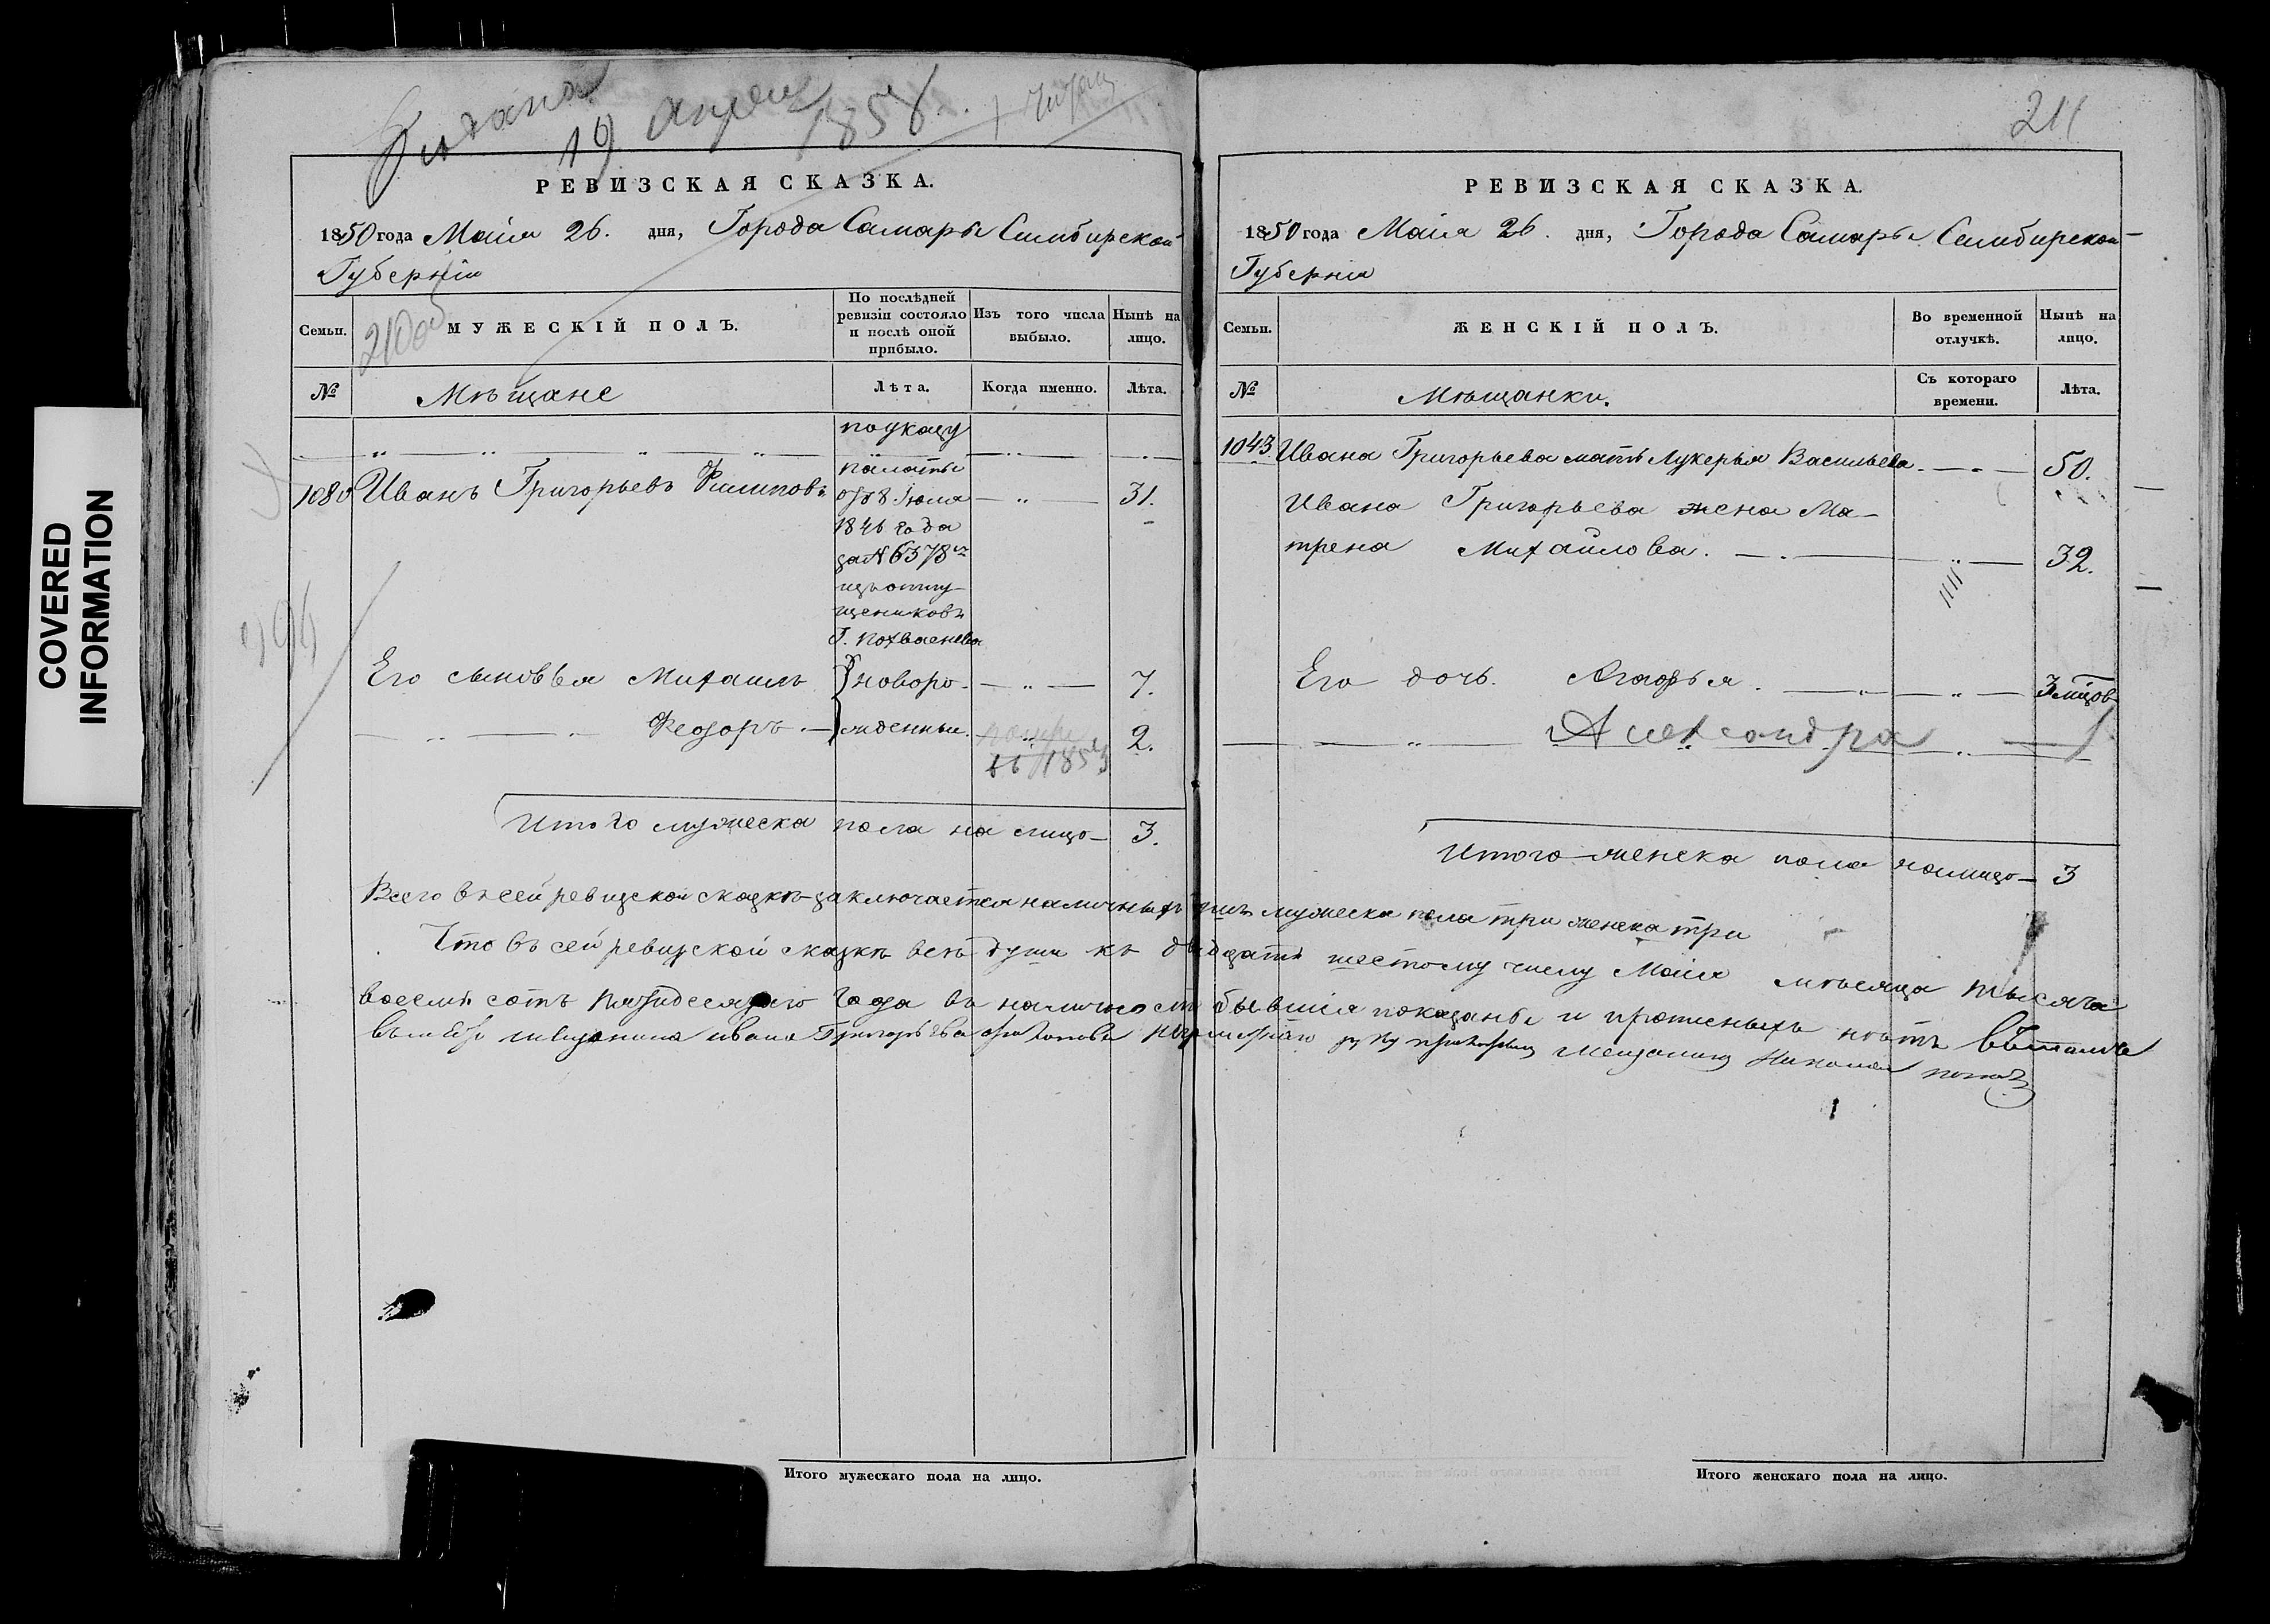 COVERED
INFORMATION
19 1858.
РЕВИЗСКАЯ СКАЗКА.
1850 года Маія 26. дня, Города Самары Симбирской
Губерніи
Семьи.
МУЖЕСКІЙ ПОЛЪ.
По послѣдней ревизіи состояло и послѣ оной прибыло.
Изъ того числа выбыло.
Нынѣ на лицо.
№
Мѣщане
Лѣта.
Когда именно.
Лѣта.
по указу
палаты
1080 Иванъ Григорьевъ Филиповъ 31.
отъ 8. Іюля
1846 года
за № 6378
изъ отпу-
щениковъ
Г. Похвиснева
Его сыновья Михаилъ новоро- 7.
Феодоръ жденныи. 2.
1853
Итого мужеска пола на лицо 3.
Всего въ сей ревизской сказкѣ заключается наличныхъ душъ мужеска пола три женска три
Что въ сей ревизской сказкѣ всѣ души къ двадцать шестому числу Маія мѣсяца тысяча
восемь сотъ пятидесятаго года въ наличности бывшія показаны и прописныхъ нѣтъ
мещанина ивана Григорьева руку приложилъ мещанинъ Николай
Итого мужескаго пола на лицо.
211
РЕВИЗСКАЯ СКАЗКА.
1850 года Маія 26. дня, Города Самары Симбирской
Губерніи
Семьи.
ЖЕНСКІЙ ПОЛЪ.
Во временной отлучкѣ.
Нынѣ на лицо.
№
Мѣщанки.
Съ котораго времени.
Лѣта.
1043 Ивана Григорьева мать Лукерья Васильева 50.
Ивана Григорьева жена Ма-
трена Михайлова. 32.
Его дочь Агафья. 3 мцов
Александра 1
Итого женска пола налицо 3
Итого женскаго пола на лицо.